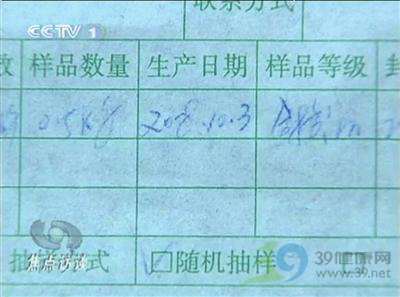 联系方式
CCTV 1
数 样品数量 生产日期 样品等级 封
0.5kg 2008.10.3
焦点访谈
抽样方式 □随机抽样
39健康网
www.39.net